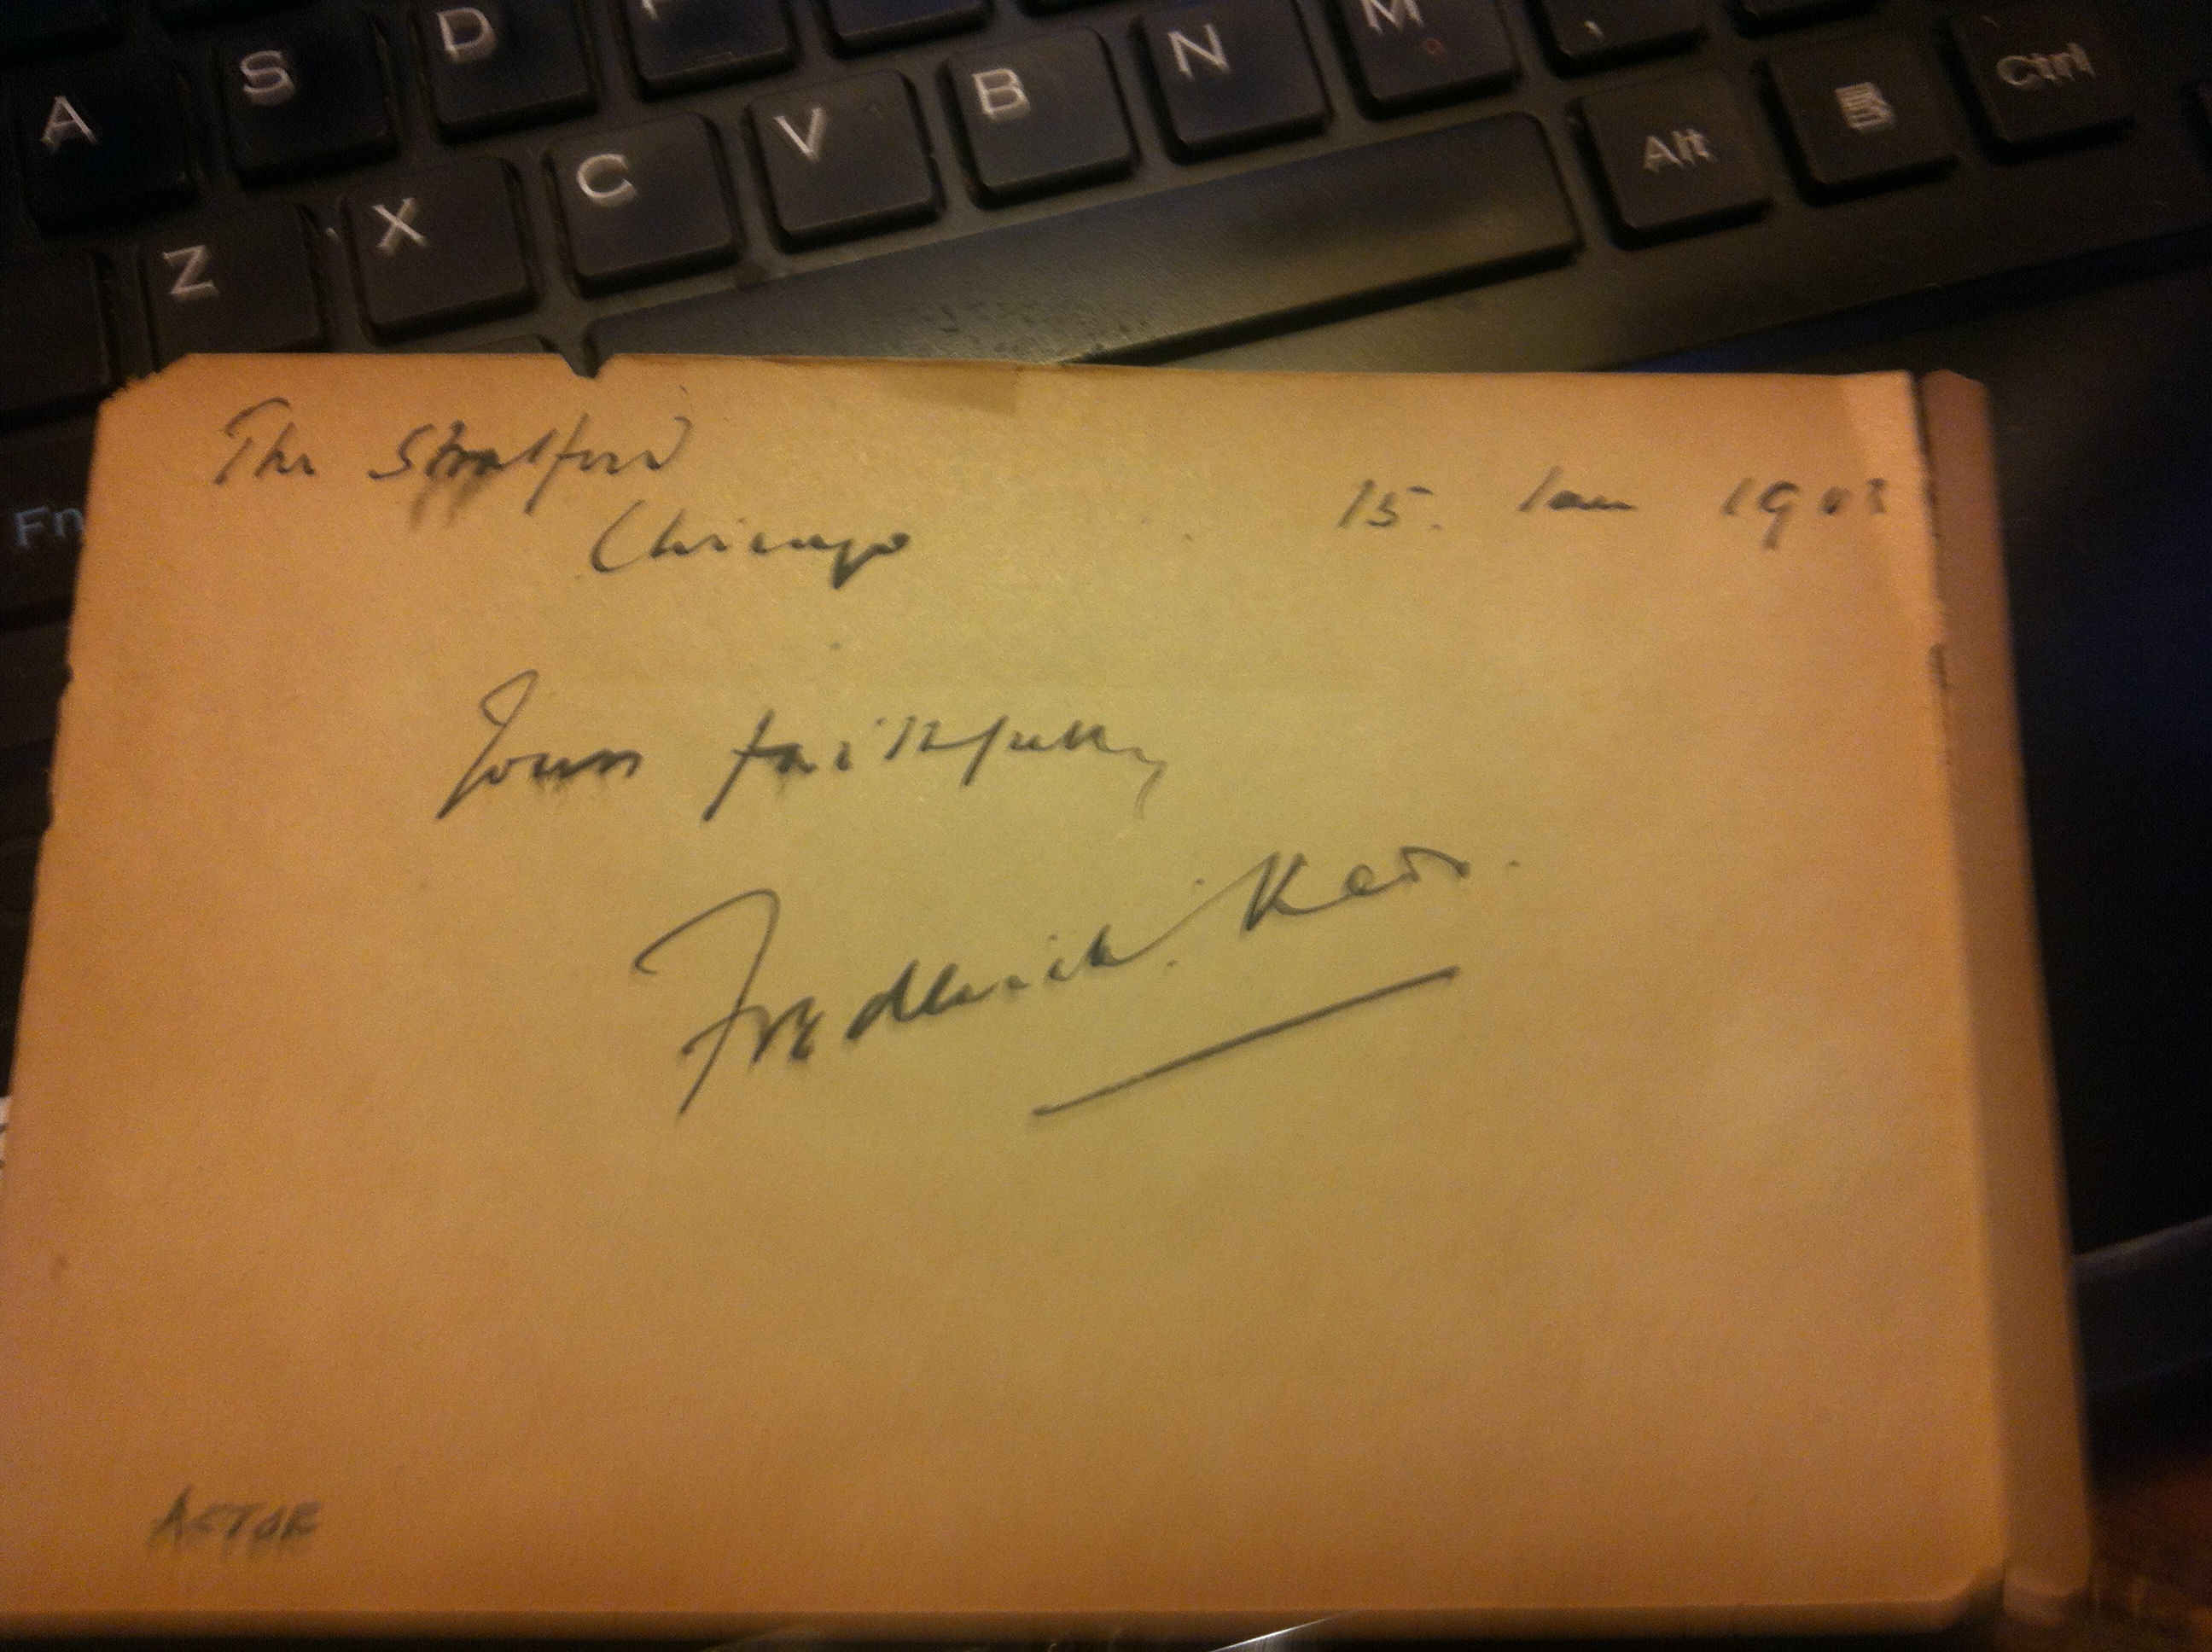 A S D
Z X C V B N M , Alt Ctrl
Fn
The Stratford
Chicago
15. Jan 1903
Yours faithfully
Frederick Kerr.
ACTOR